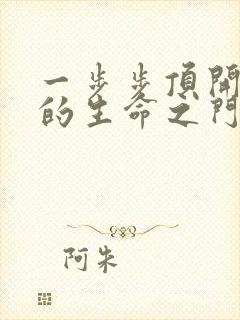 一步步頂開
的生命之門
阿朱